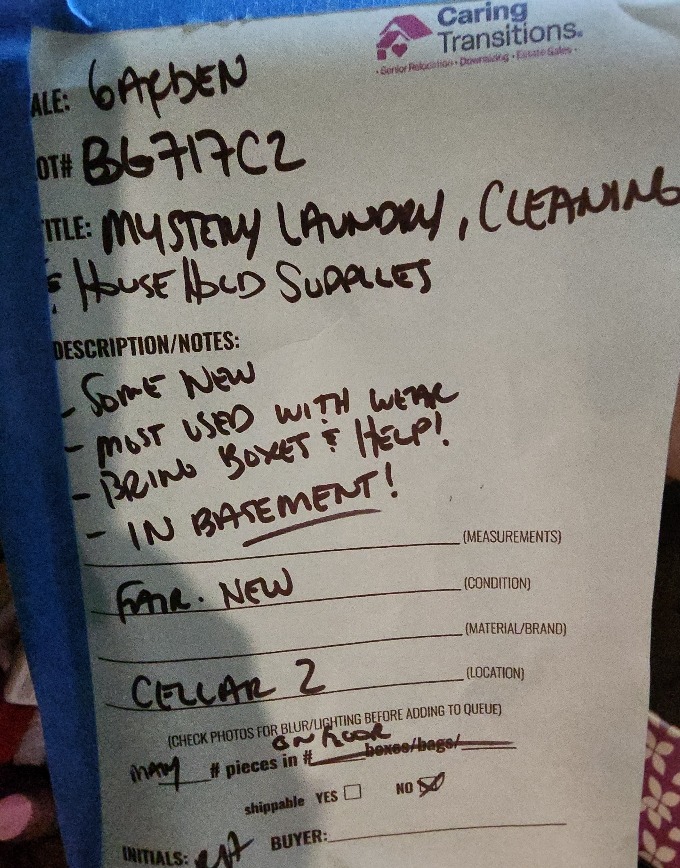 Caring
Transitions®
• Senior Relocation • Downsizing • Estate Sales •
ALE: GARDEN
OT# BG717C2
ITLE: MYSTERY LAUNDRY, CLEANING
& HOUSEHOLD SUPPLIES
DESCRIPTION/NOTES:
- SOME NEW
- MOST USED WITH WEAR
- BRING BOXES & HELP!
- IN BASEMENT!
(MEASUREMENTS)
FAIR - NEW (CONDITION)
(MATERIAL/BRAND)
CELLAR 2 (LOCATION)
(CHECK PHOTOS FOR BLUR/LIGHTING BEFORE ADDING TO QUEUE)
ON FLOOR
MANY # pieces in # boxes/bags/
shippable YES NO
INITIALS: BUYER: